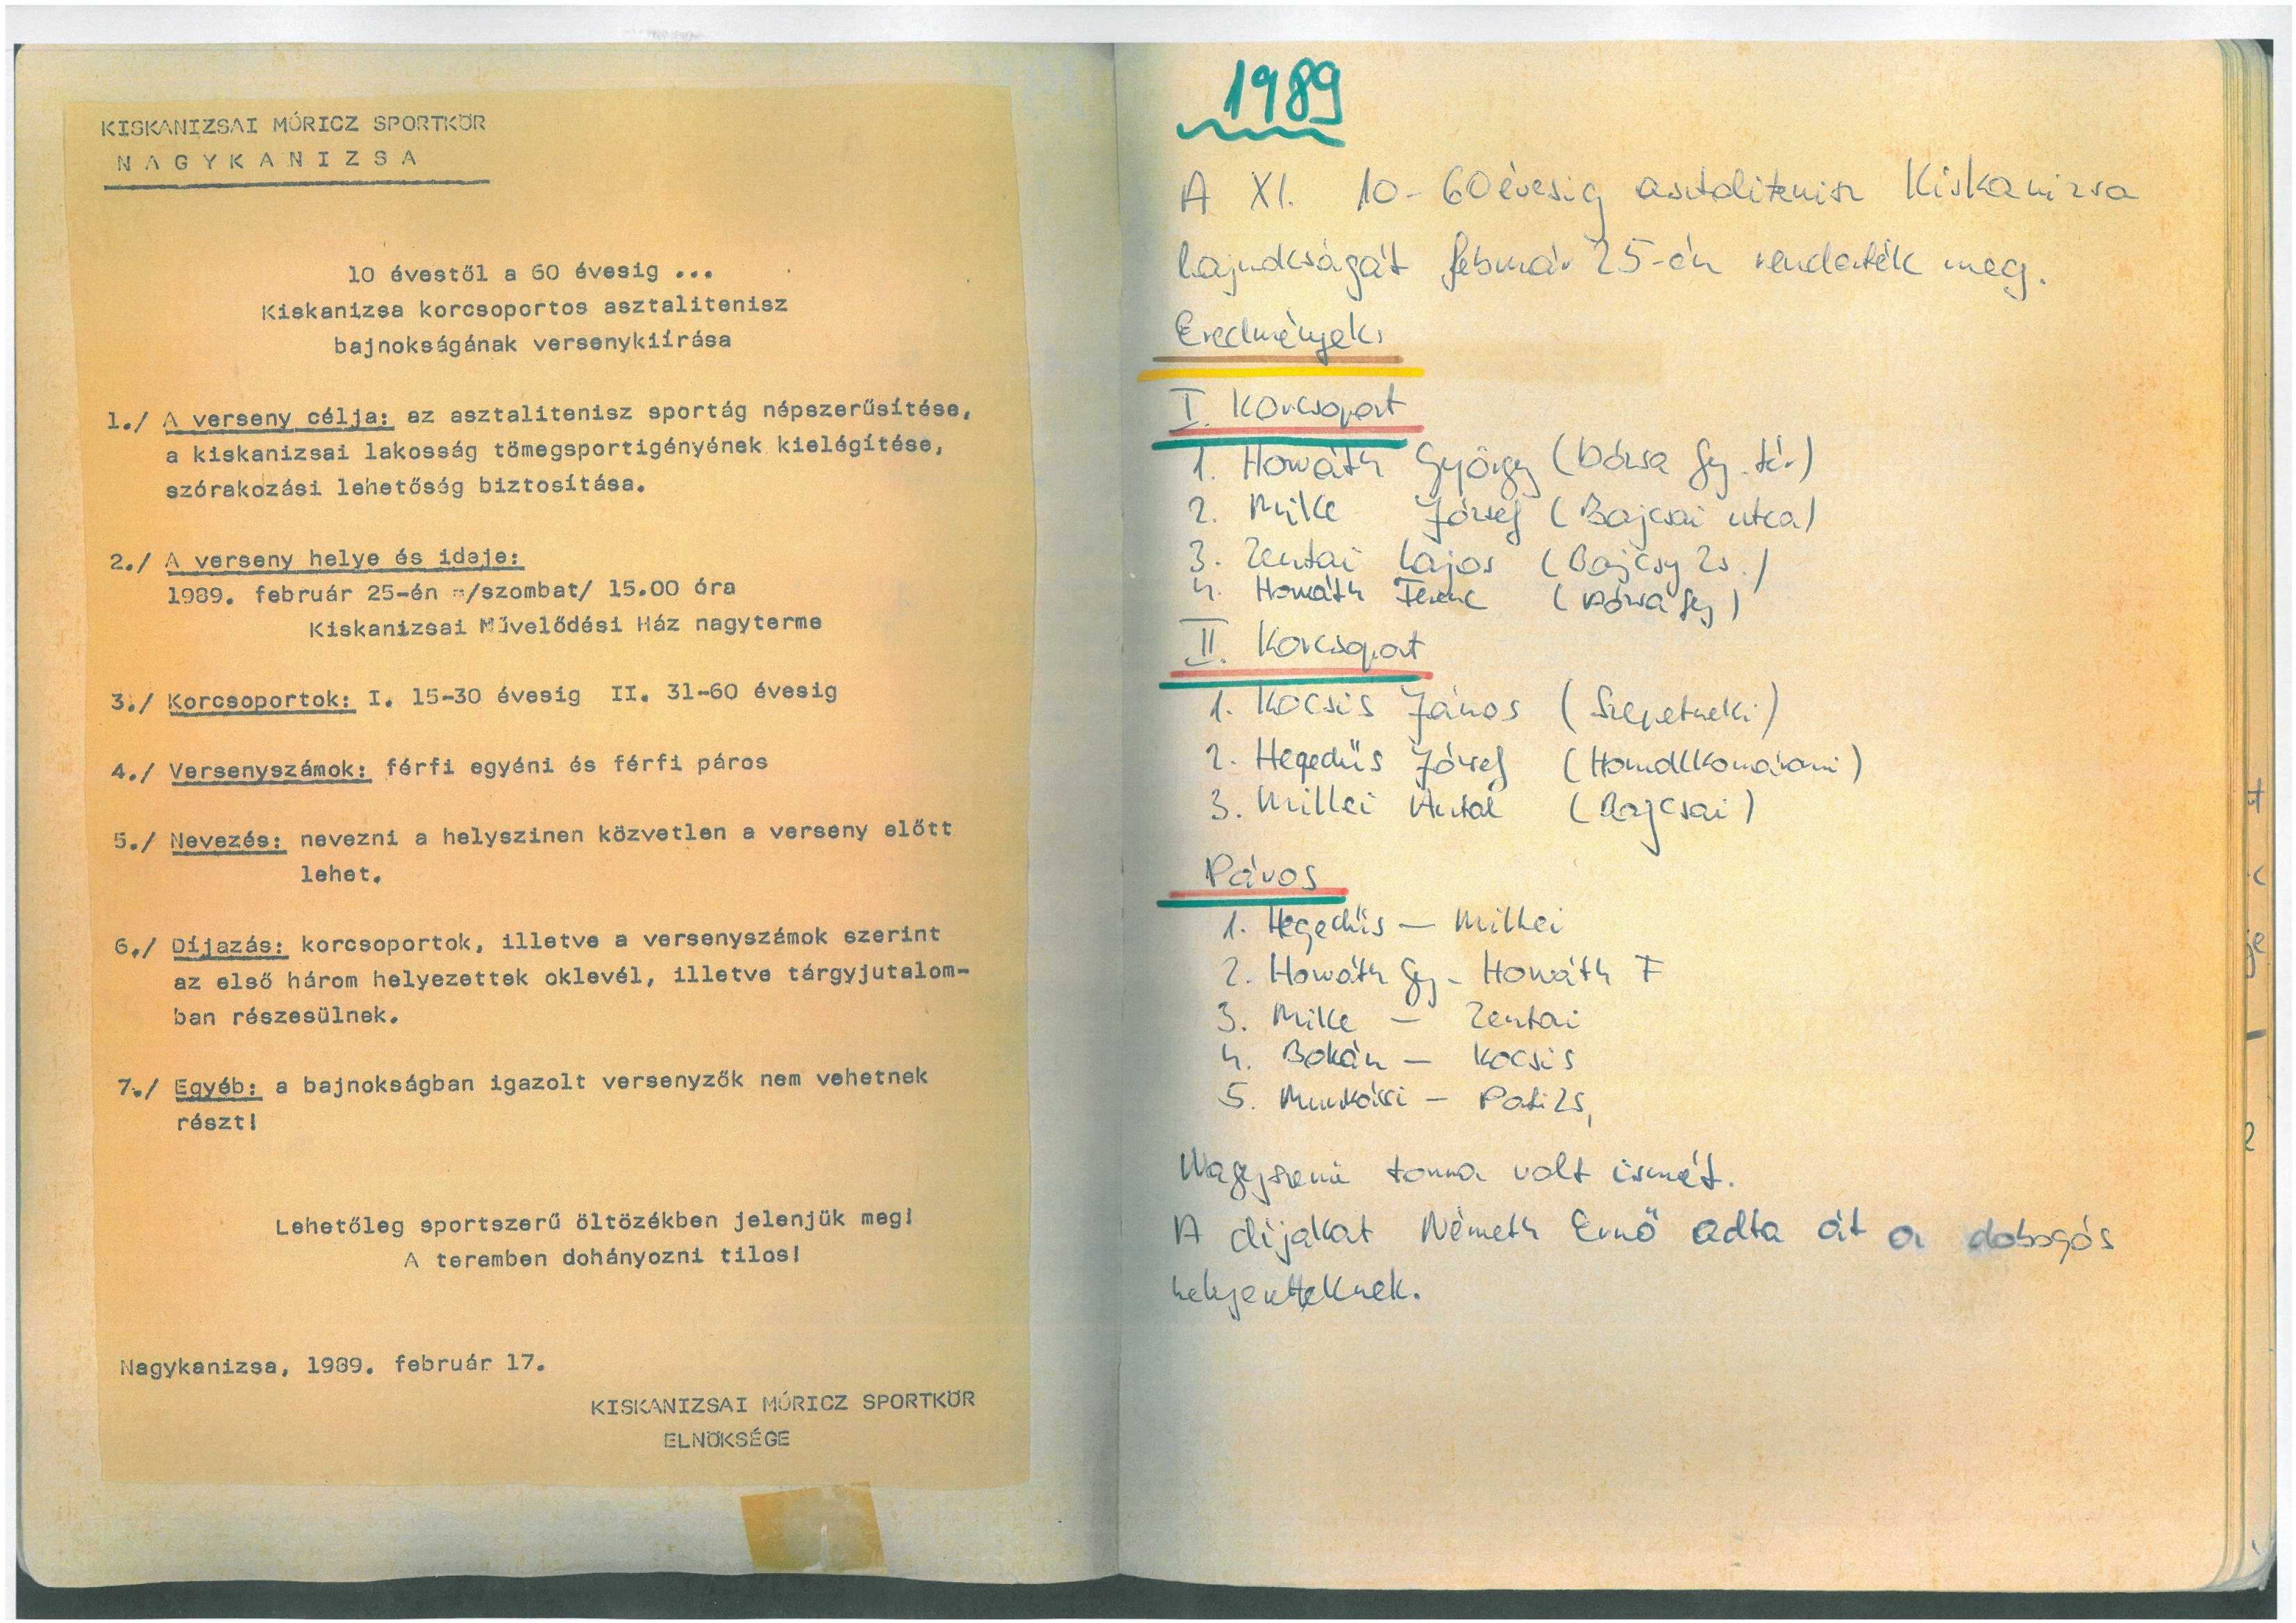 KISKANIZSAI MÓRICZ SPORTKÖR
NAGYKANIZSA
10 évestől a 60 évesig ...
Kiskanizsa korcsoportos asztalitenisz
bajnokságának versenykiírása
1./ A verseny célja: az asztalitenisz sportág népszerűsítése,
a kiskanizsai lakosság tömegsportigényének kielégítése,
szórakozási lehetőség biztosítása.
2./ A verseny helye és ideje:
1989. február 25-én -/szombat/ 15.00 óra
Kiskanizsai Művelődési Ház nagyterme
3./ Korcsoportok: I. 15-30 évesig II. 31-60 évesig
4./ Versenyszámok: férfi egyéni és férfi páros
5./ Nevezés: nevezni a helyszinen közvetlen a verseny előtt
lehet.
6./ Díjazás: korcsoportok, illetve a versenyszámok szerint
az első három helyezettek oklevél, illetve tárgyjutalom-
ban részesülnek.
7./ Egyéb: a bajnokságban igazolt versenyzők nem vehetnek
részt!
Lehetőleg sportszerű öltözékben jelenjük meg!
A teremben dohányozni tilos!
Nagykanizsa, 1989. február 17.
KISKANIZSAI MÓRICZ SPORTKÖR
ELNÖKSÉGE
1989
A XI. 10-60 évesig asztalitenisz Kiskanizsa
bajnokságát február 25-én rendezték meg.
Eredmények:
I. Korcsoport
1. Horváth György (Dózsa Gy. tér)
2. Mike József (Bajcsai utca)
3. Zentai Lajos (Bajcsy Zs.)
4. Horváth Ferenc (Dózsa Gy)
II. Korcsoport
1. Kocsis János (Szepetneki)
2. Hegedűs József (Homokkomáromi)
3. Millei Antal (Bajcsai)
Páros
1. Hegedűs — Millei
2. Horváth Gy - Horváth F
3. Mike — Zentai
4. Bokán — Kocsis
5. Munkácsi — Pati Zs,
Nagyszerű torna volt ismét.
A díjakat Németh Ernő adta át a dobogós
helyezetteknek.